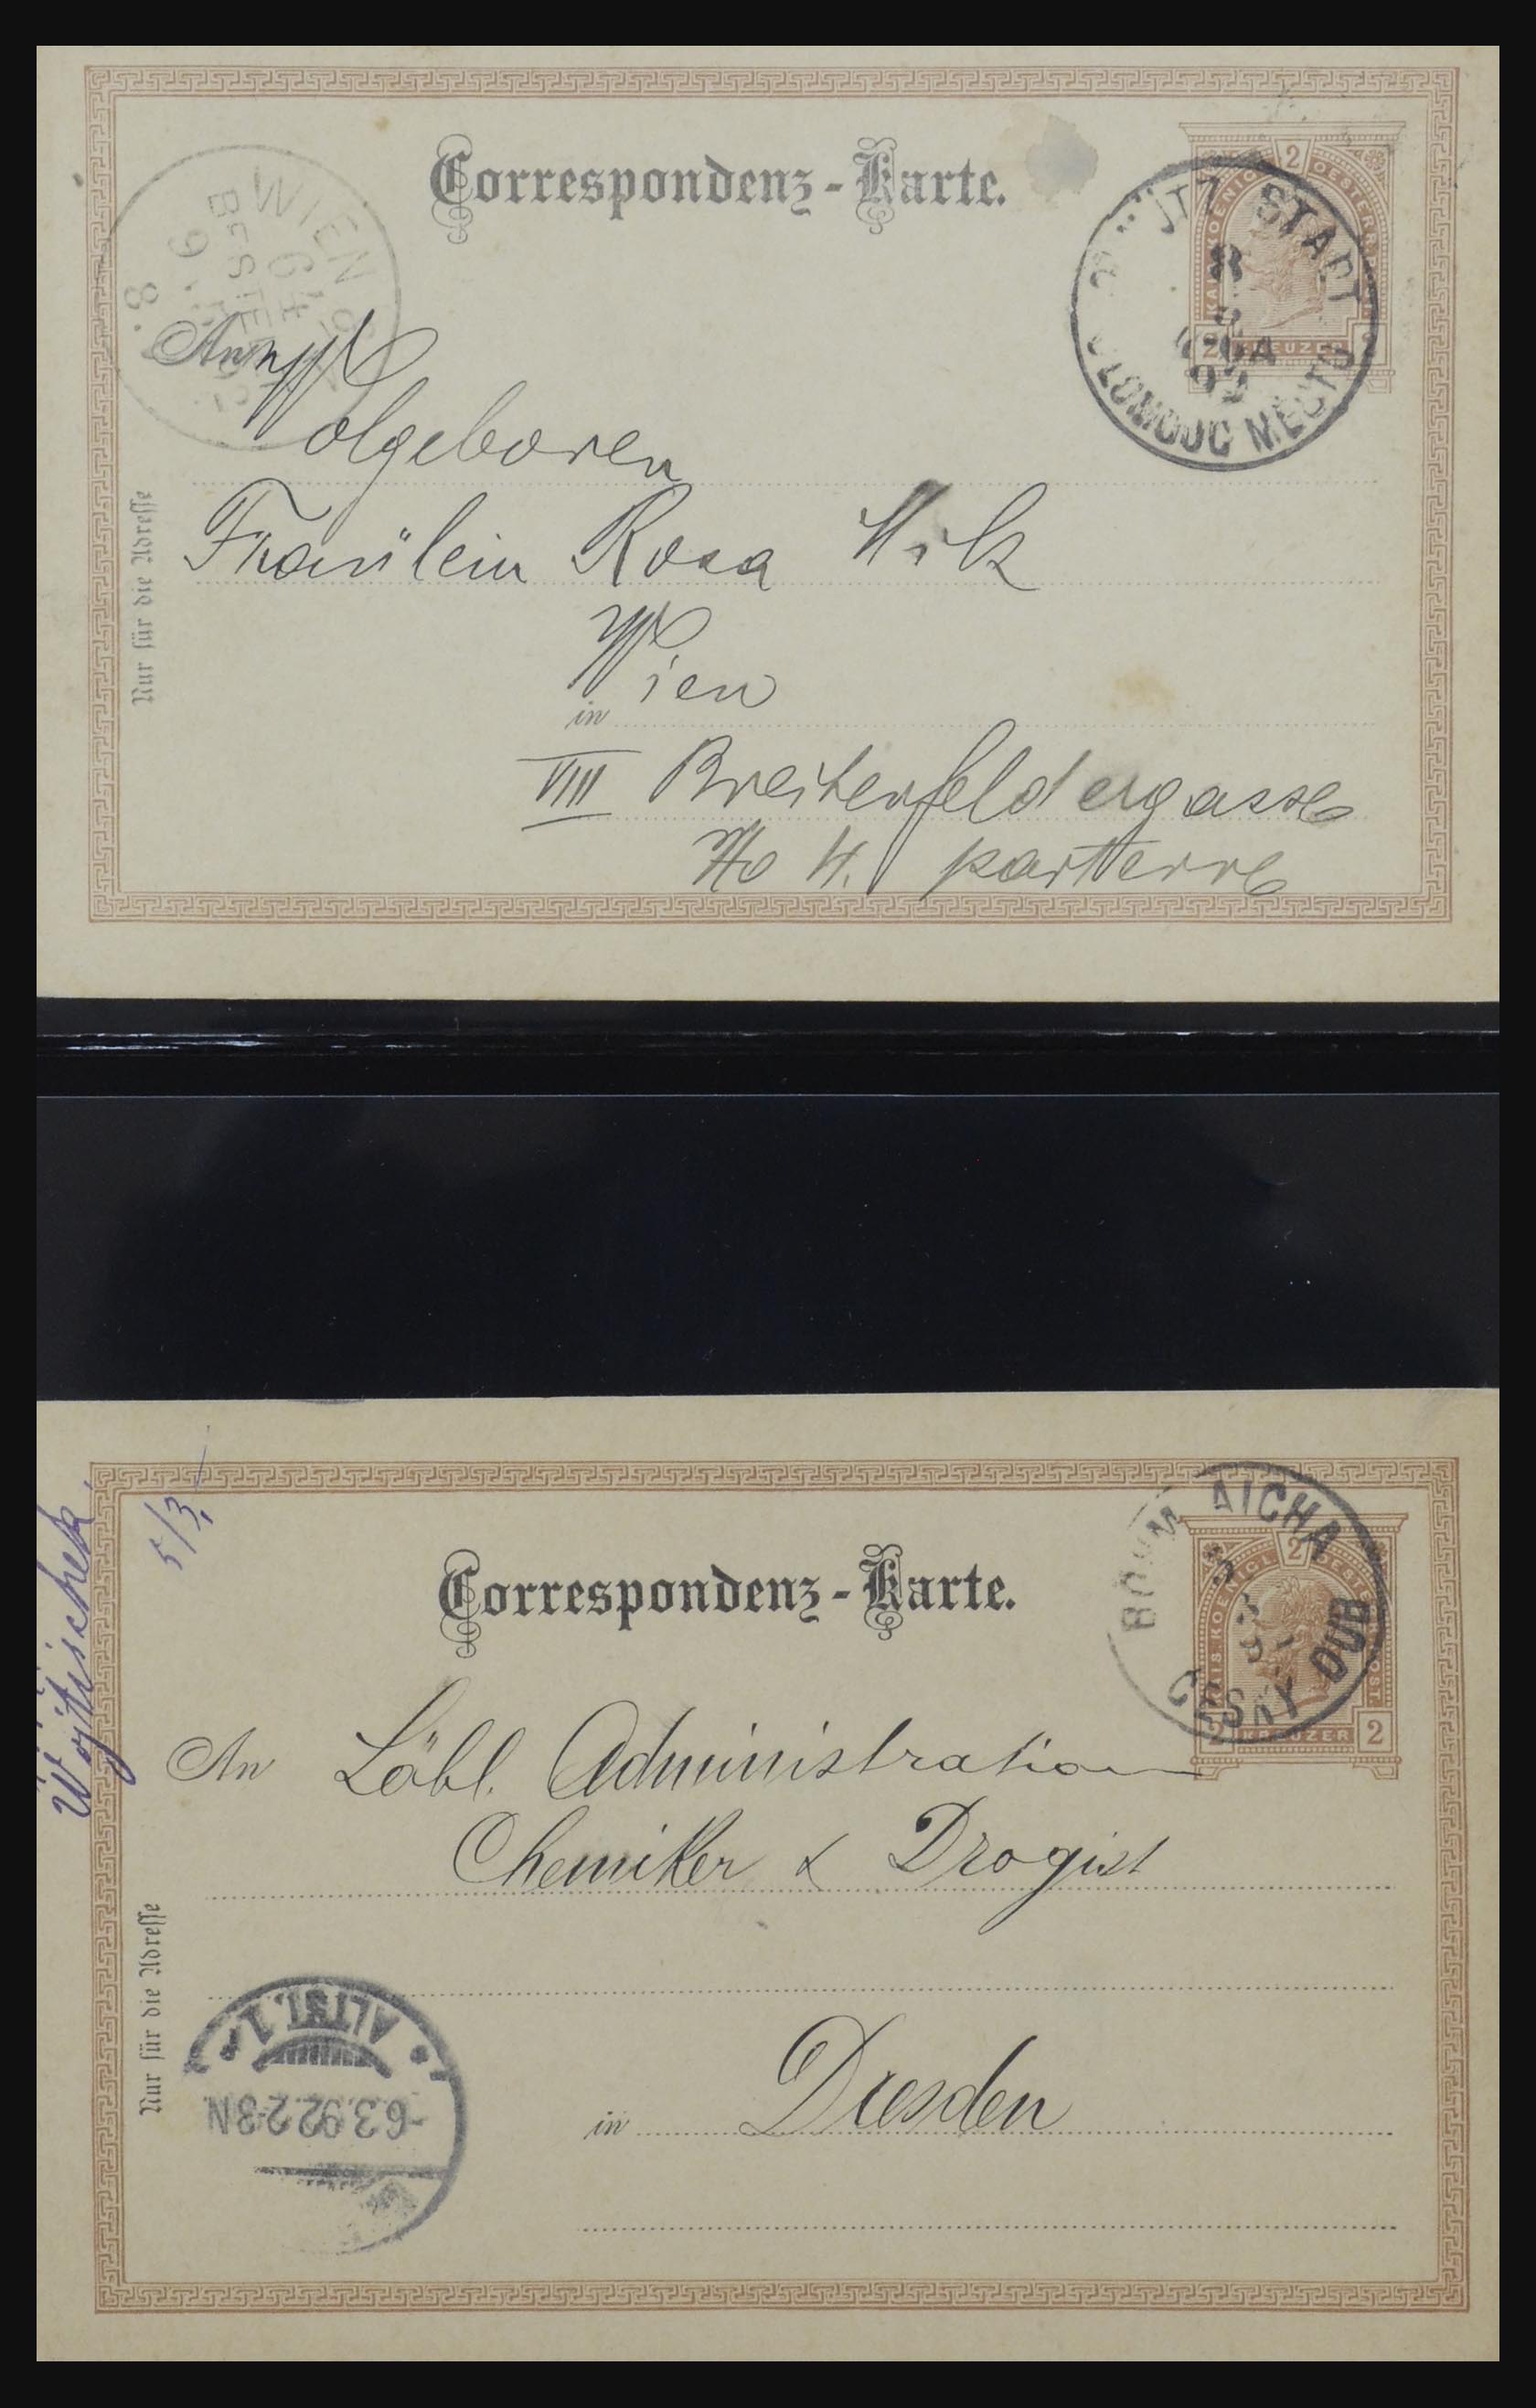 Correspondenz-Karte.
WIEN
64
BESTELLT
9.
8.
2
STADT
8
92
OLOMOUC MĚSTO
2 KREUZER
An
Wolgeboren
Fraülein Rosa
Wien
in
VIII Breitenfeldergasse
No 4. parterre
Nur für die Adresse
5/3.
Wojtischek.
Correspondenz-Karte.
BÖHM. AICHA
5
3
ČESKÝ DUB
KAIS. KOENIGL. 2 OESTERR. POST.
2 KREUZER 2
An Löbl. Administration
Chemiker & Drogist
in Dresden
Nur für die Adresse
ALTST. 1.
-6.3.92.2-3N